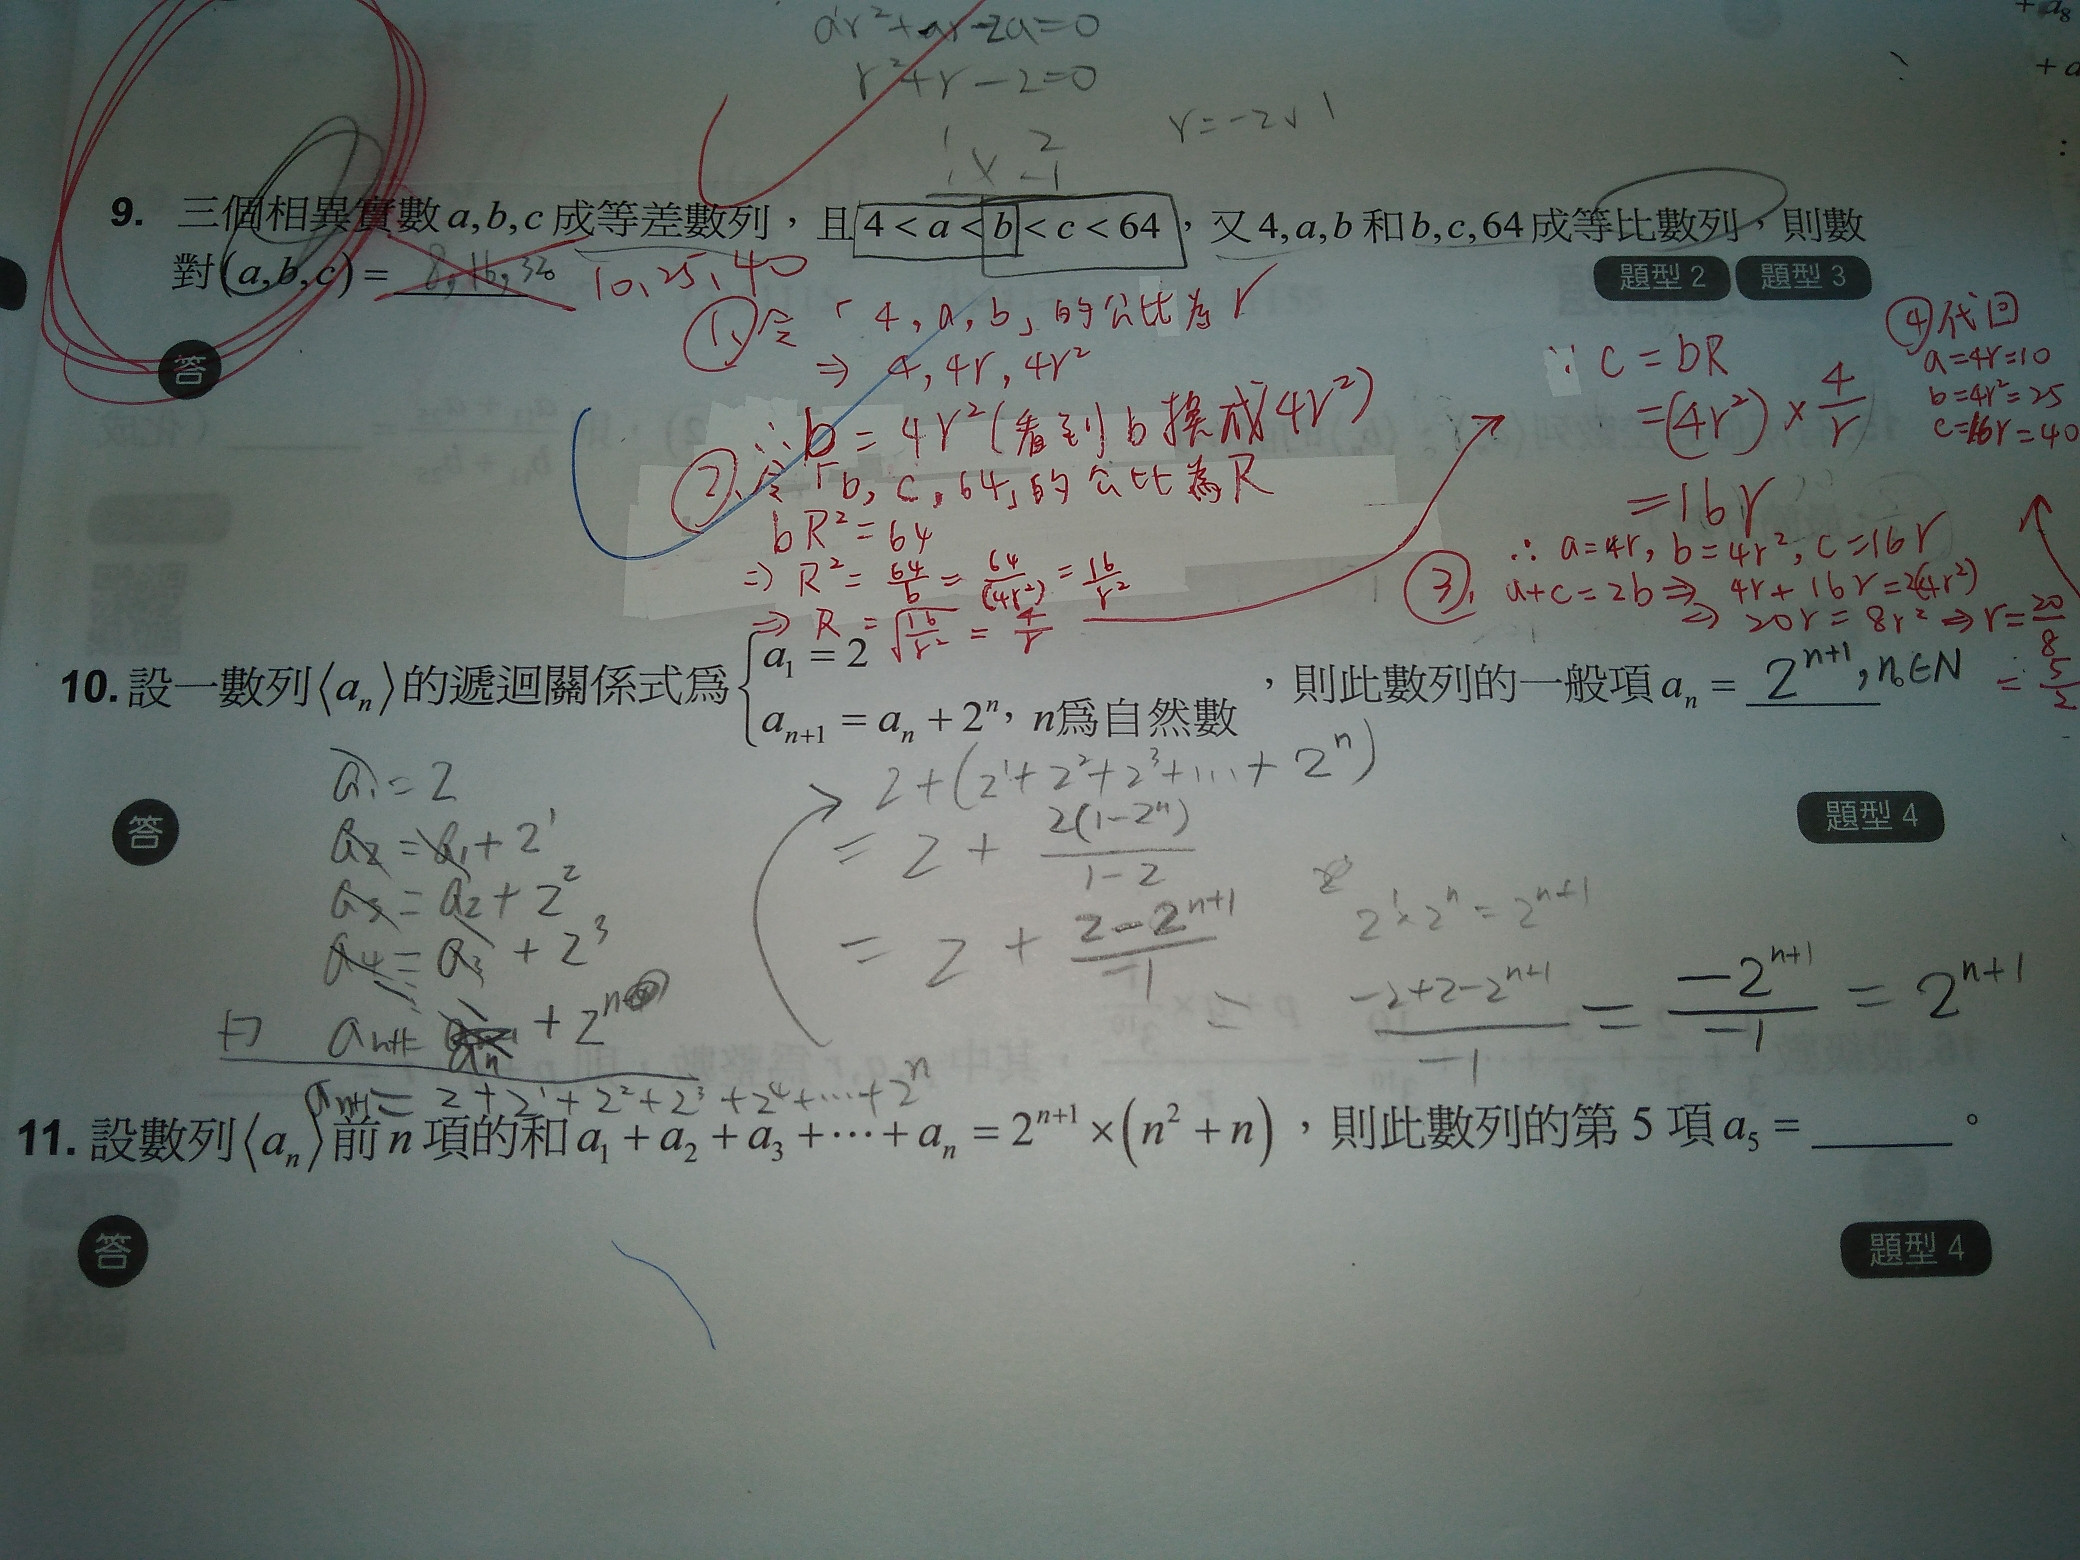 ar²+ar-2a=0
r²+r-2=0
r=-2√1
1 2
1 × -1
9. 三個相異實數a,b,c成等差數列，且4<a<b<c<64，又4,a,b和b,c,64成等比數列，則數
對(a,b,c)= 8,16,32。 10,25,40
題型2 題型3
①、令「4,a,b」的公比為r
⇒ 4,4r,4r²
∴b=4r²(看到b換成4r²)
②、令「b,c,64」的公比為R
bR²=64
⇒ R²=64/b=64/(4r²)=16/r²
⇒ R=√(16/r²)=4/r
∵ c=bR
=(4r²)×4/r
=16r
∴ a=4r, b=4r², c=16r
③、a+c=2b⇒ 4r+16r=2(4r²)
⇒ 20r=8r²⇒r=20/8
=5/2
④代回
a=4r=10
b=4r²=25
c=16r=40
答
10. 設一數列⟨aₙ⟩的遞迴關係式為{a₁=2
aₙ₊₁=aₙ+2ⁿ，n為自然數，則此數列的一般項aₙ= 2ⁿ⁺¹,n∈N。
題型4
答
a₁=2
a₂=a₁+2¹
a₃=a₂+2²
a₄=a₃+2³
⋮
+) aₙ₊₁=aₙ+2ⁿ
aₙ₊₁=2+2¹+2²+2³+2⁴+⋯+2ⁿ
2+(2¹+2²+2³+...+2ⁿ)
=2+2(1-2ⁿ)/(1-2)
=2+(2-2ⁿ⁺¹)/(-1)
2¹×2ⁿ=2ⁿ⁺¹
=(-2+2-2ⁿ⁺¹)/(-1)=(-2ⁿ⁺¹)/(-1)=2ⁿ⁺¹
11. 設數列⟨aₙ⟩前n項的和a₁+a₂+a₃+⋯+aₙ=2ⁿ⁺¹×(n²+n)，則此數列的第5項a₅=______。
答
題型4
+a₈